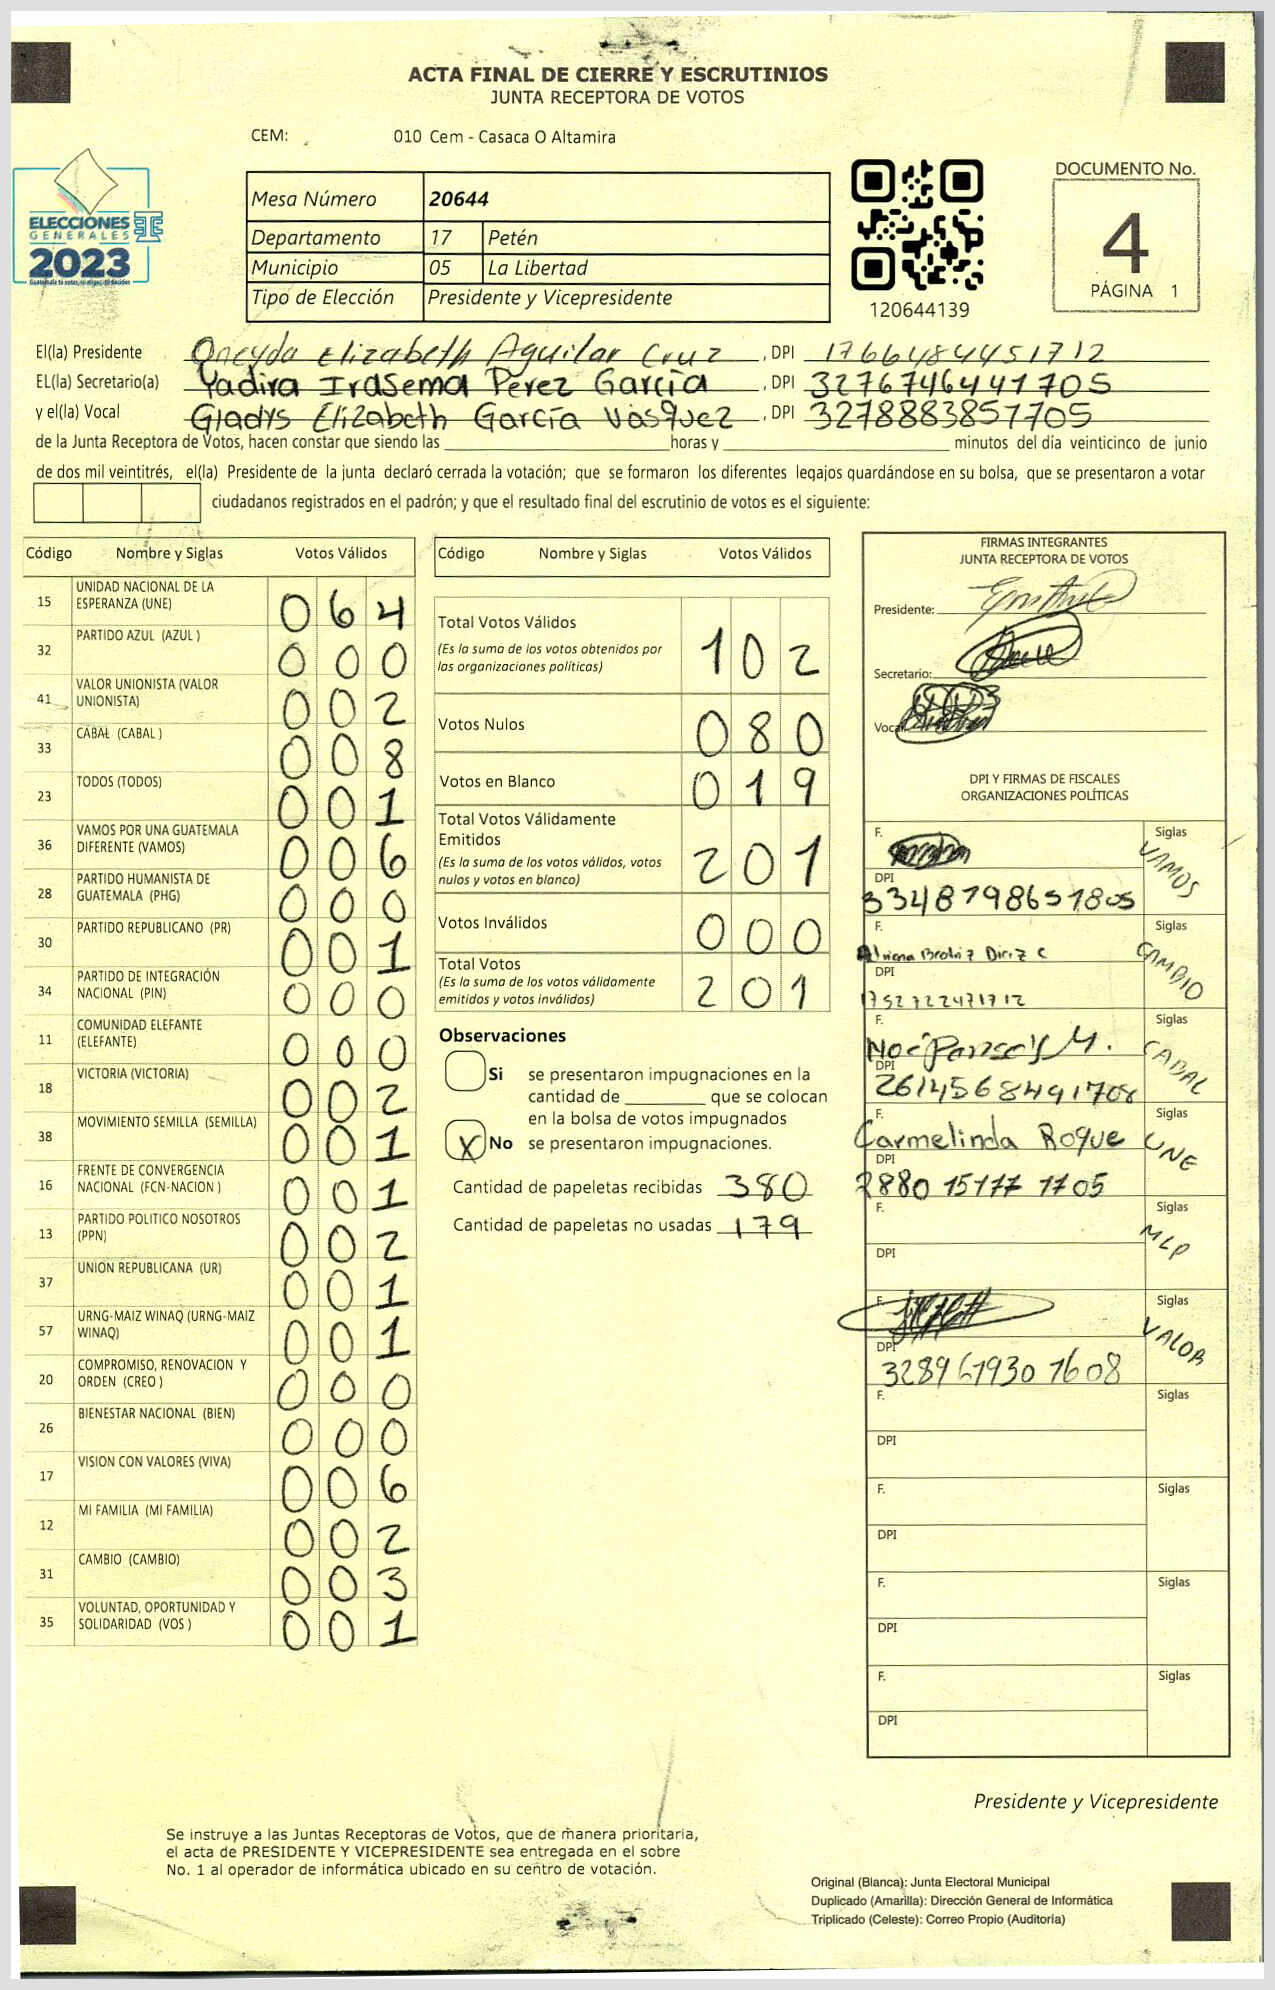 ACTA FINAL DE CIERRE Y ESCRUTINIOS
JUNTA RECEPTORA DE VOTOS
CEM: 010 Cem - Casaca O Altamira
ELECCIONES
GENERALES
2023
Mesa Número 20644
Departamento 17 Petén
Municipio 05 La Libertad
Tipo de Elección Presidente y Vicepresidente
120644139
DOCUMENTO No.
4
PÁGINA 1
El(la) Presidente Oneyda Elizabeth Aguilar Cruz, DPI 1766484451712
EL(la) Secretario(a) Yadira Irasema Perez García, DPI 3276746441705
y el(la) Vocal Gladys Elizabeth García Vásquez, DPI 3278883857705
de la Junta Receptora de Votos, hacen constar que siendo las horas y minutos del día veinticinco de junio
de dos mil veintitrés, el(la) Presidente de la junta declaró cerrada la votación; que se formaron los diferentes legajos guardándose en su bolsa, que se presentaron a votar
ciudadanos registrados en el padrón; y que el resultado final del escrutinio de votos es el siguiente:
Código Nombre y Siglas Votos Válidos
15 UNIDAD NACIONAL DE LA ESPERANZA (UNE) 064
32 PARTIDO AZUL (AZUL ) 000
41 VALOR UNIONISTA (VALOR UNIONISTA) 002
33 CABAL (CABAL ) 008
23 TODOS (TODOS) 001
36 VAMOS POR UNA GUATEMALA DIFERENTE (VAMOS) 006
28 PARTIDO HUMANISTA DE GUATEMALA (PHG) 000
30 PARTIDO REPUBLICANO (PR) 001
34 PARTIDO DE INTEGRACIÓN NACIONAL (PIN) 000
11 COMUNIDAD ELEFANTE (ELEFANTE) 000
18 VICTORIA (VICTORIA) 002
38 MOVIMIENTO SEMILLA (SEMILLA) 001
16 FRENTE DE CONVERGENCIA NACIONAL (FCN-NACION ) 001
13 PARTIDO POLITICO NOSOTROS (PPN) 002
37 UNION REPUBLICANA (UR) 001
57 URNG-MAIZ WINAQ (URNG-MAIZ WINAQ) 001
20 COMPROMISO, RENOVACION Y ORDEN (CREO ) 000
26 BIENESTAR NACIONAL (BIEN) 000
17 VISION CON VALORES (VIVA) 006
12 MI FAMILIA (MI FAMILIA) 002
31 CAMBIO (CAMBIO) 003
35 VOLUNTAD, OPORTUNIDAD Y SOLIDARIDAD (VOS ) 001
Código Nombre y Siglas Votos Válidos
Total Votos Válidos 102
(Es la suma de los votos obtenidos por
las organizaciones políticas)
Votos Nulos 080
Votos en Blanco 019
Total Votos Válidamente
Emitidos 201
(Es la suma de los votos válidos, votos
nulos y votos en blanco)
Votos Inválidos 000
Total Votos 201
(Es la suma de los votos válidamente
emitidos y votos inválidos)
Observaciones
Si se presentaron impugnaciones en la
cantidad de que se colocan
en la bolsa de votos impugnados
X No se presentaron impugnaciones.
Cantidad de papeletas recibidas 380
Cantidad de papeletas no usadas 179
FIRMAS INTEGRANTES
JUNTA RECEPTORA DE VOTOS
Presidente:
Secretario:
Vocal:
DPI Y FIRMAS DE FISCALES
ORGANIZACIONES POLÍTICAS
F. Siglas VAMOS
DPI 3348798651805
F. Siglas CAMBIO
DPI 1752722471712
F. Siglas CABAL
DPI 2614568491708
F. Carmelinda Roque Siglas UNE
DPI 2880 15177 1705
F. Siglas MLP
DPI
F. Siglas VALOR
DPI 328961930 1608
F. Siglas
DPI
F. Siglas
DPI
F. Siglas
DPI
F. Siglas
DPI
Presidente y Vicepresidente
Se instruye a las Juntas Receptoras de Votos, que de manera prioritaria,
el acta de PRESIDENTE Y VICEPRESIDENTE sea entregada en el sobre
No. 1 al operador de informática ubicado en su centro de votación.
Original (Blanca): Junta Electoral Municipal
Duplicado (Amarilla): Dirección General de Informática
Triplicado (Celeste): Correo Propio (Auditoría)